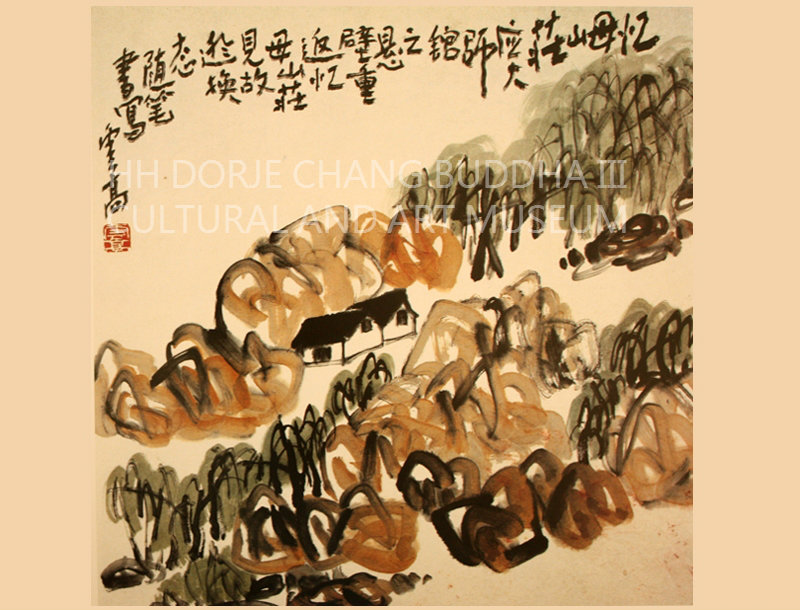 忆
母山
莊
应大
師
舘
之
悬
壁重
返忆
母山莊
見故
换
态
随笔
書寫
雲高
HH DORJE CHANG BUDDHA III
CULTURAL AND ART MUSEUM